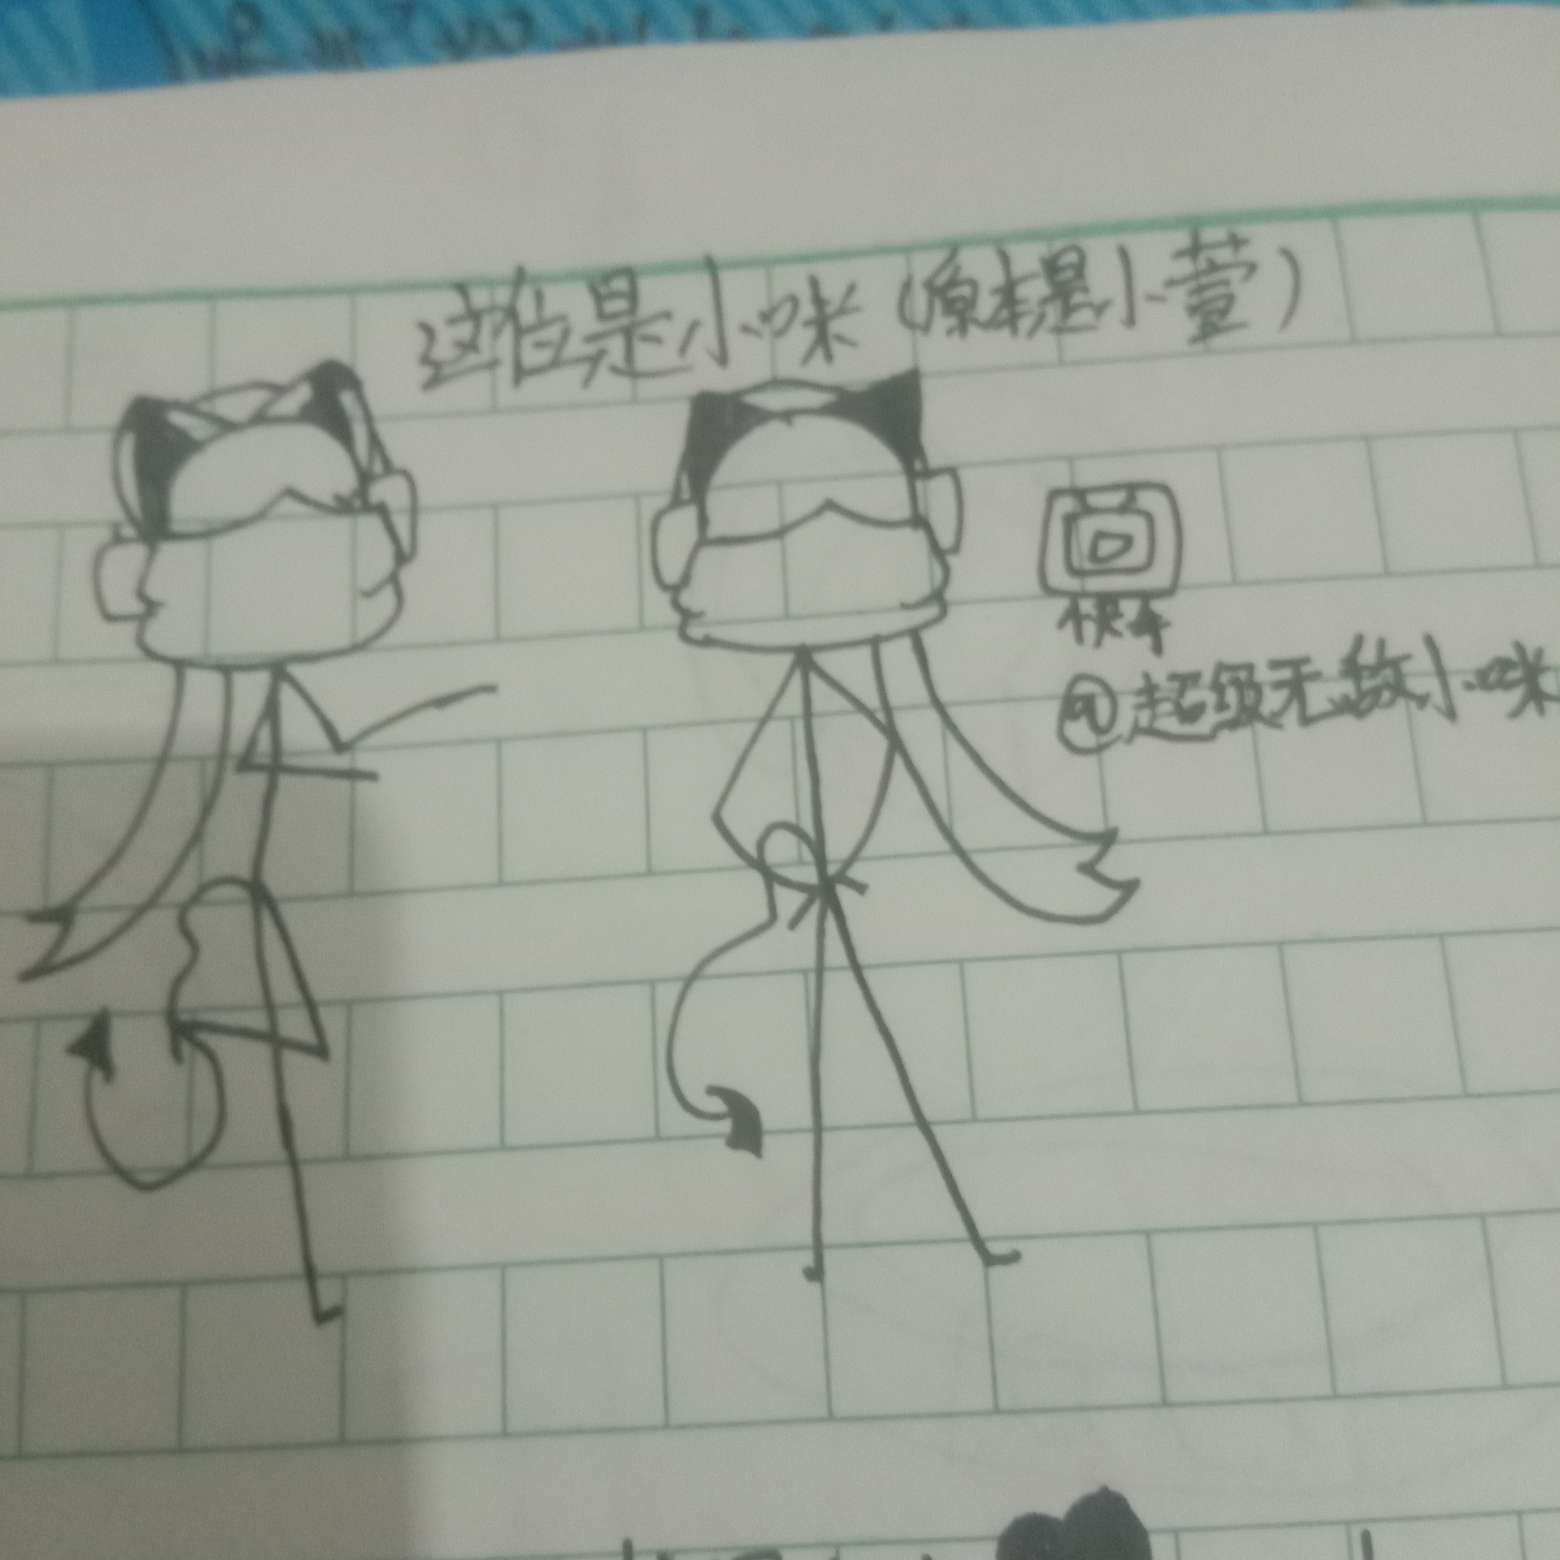 这位是小咪(原本是小萱)
快手
@超级无敌小咪